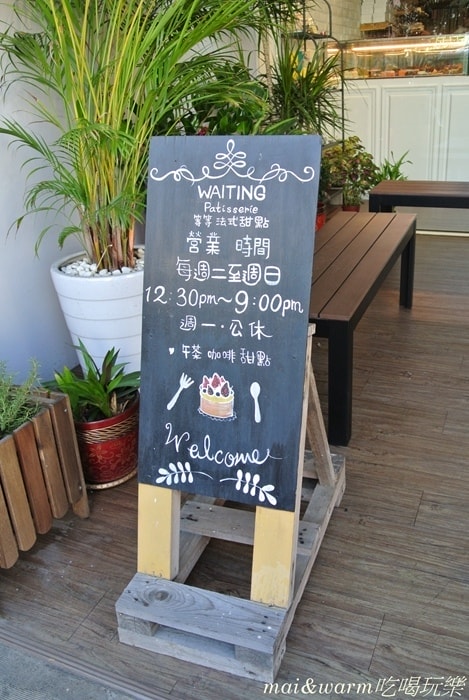 WAITING
Patisserie
等等法式甜點
營業 時間
每週二至週日
12:30pm~9:00pm
週一·公休
♥ 午茶 咖啡 甜點
Welcome
mai&warm吃喝玩樂